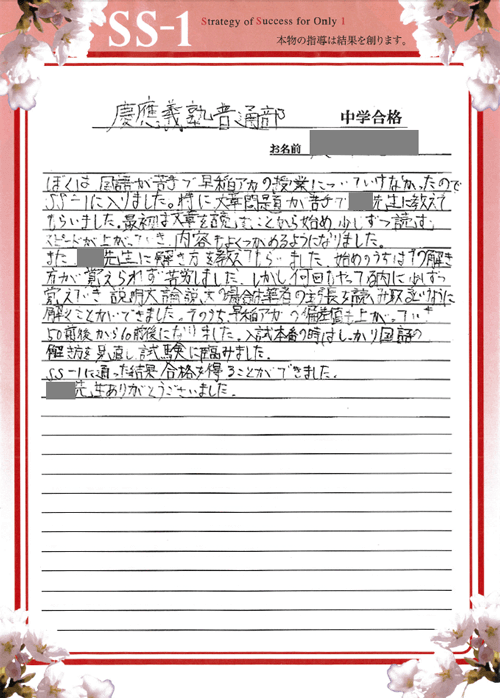 SS-1
Strategy of Success for Only 1
本物の指導は結果を創ります。
慶應義塾普通部 中学合格
お名前
ぼくは国語が苦手で早稲アカの授業についていけなかったので
SS-1に入りました。特に文章問題が苦手で 先生に教えて
もらいました。最初は文章を読むことから始め少しずつ読む
スピードが上がっていき、内容もよくつかめるようになりました。
また 先生に解き方を教えてもらいました。始めのうちは解き
方が覚えられず苦労しました。しかし何回もやってる内に必ずつ
覚えていき説明文論説文の場合は筆者の主張を読み取るように
解くことができました。そのうち早稲アカの偏差値も上がってい
50前後から60前後になりました。入試本番の時はしっかり国語の
解き方を見直し試験に臨みました。
SS-1に通った結果合格を得ることができました。
先生ありがとうございました。